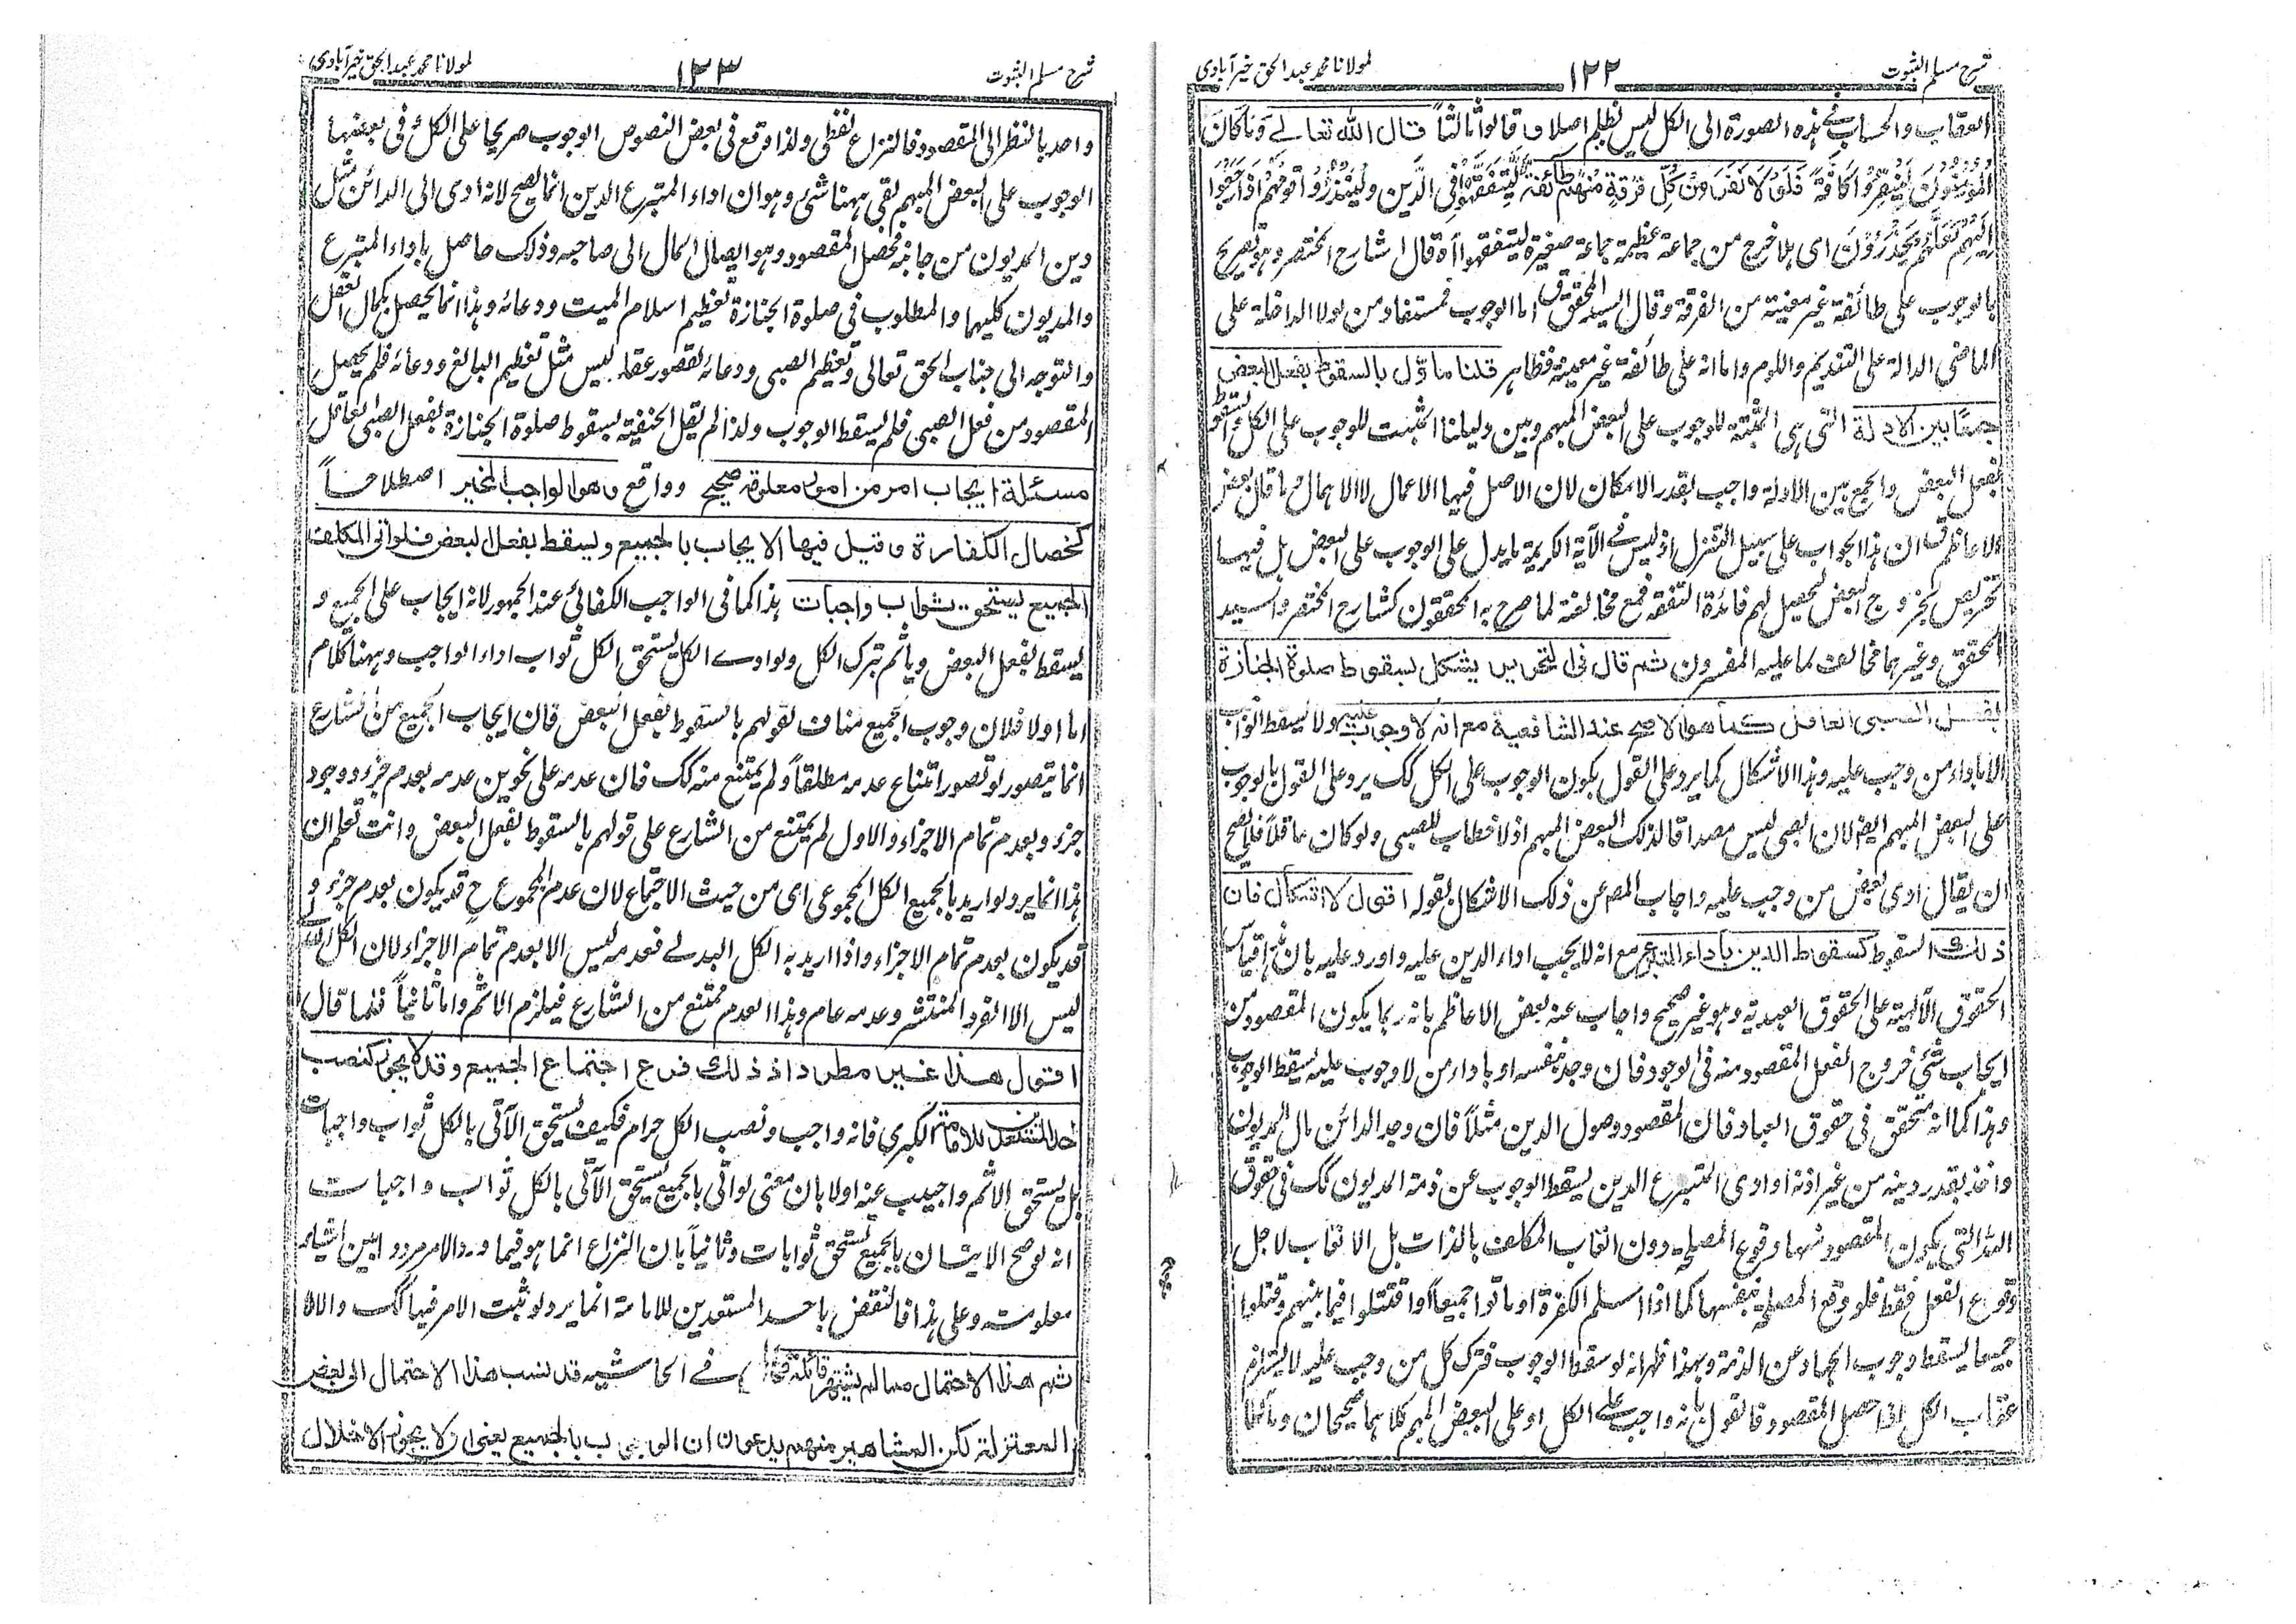 شرح مسلم الثبوت ١٢٢ لمولانا محمد عبد الحق خیرآبادی
العقاب والحساب بهذه الصورة الى الكل ليس بظلم اصلا ق قالوا ثالثاً قال الله تعالى وَمَا كَانَ
الْمُؤْمِنُونَ لِيَنْفِرُوا كَافَّةً فَلَوْلَا نَفَرَ مِنْ كُلِّ فِرْقَةٍ مِنْهُمْ طَائِفَةٌ لِيَتَفَقَّهُوا فِي الدِّينِ وَلِيُنْذِرُوا قَوْمَهُمْ إِذَا رَجَعُوا
إِلَيْهِمْ لَعَلَّهُمْ يَحْذَرُونَ اى هلا خرج من جماعة عظيمة جماعة صغيرة ليتفقهوا آه قال شارح المختصر وهو تصريح
بالوجوب على طائفة غير معينة من الفرقة وقال السيد المحقق ق اما الوجوب فمستفاد من لولا الداخلة على
الماضى الدالة على التنديم واللوم واما انه على طائفة غير معينة فظاهر قلنا مأوّل بالسقوط بفعل البعض
جمعًا بين الادلة التى هى المثبتة للوجوب على البعض المبهم وبين دليلنا المثبت للوجوب على الكل لسقوط
بفعل البعض والجمع بين الادلة واجب بقدر الامكان لان الاصل فيها الاعمال لا الاهمال وما قال بعض
الاعاظم ق ان هذا الجواب على سبيل التنزل اذ ليس فى الآية الكريمة ما يدل على الوجوب على البعض بل فيها
تحريص لخروج البعض ليحصل لهم فائدة التفقه فمع مخالفته لما صرح به المحققون كشارح المختصر والسيد
المحقق وغيرهما مخالف لما عليه المفسرون ثم قال فى التحرير يشكل بسقوط صلوة الجنازة
بفعل الصبى العاقل كما هو الاصح عند الشافعية مع انه لا وجوب عليه ولا يسقط الواجب
الا باداء من وجب عليه وهذا الاشكال كما يرد على القول بكون الوجوب على الكل كك يرد على القول بالوجوب
على البعض المبهم ايضا لان الصبى ليس مصداقا لذلك البعض المبهم اذ لا خطاب للصبى ولو كان عاقلاً فلا يصح
ان يقال ادى بعض من وجب عليه واجاب المص عن ذلك الاشكال بقوله اقول لا اشكال فان
ذلك السقوط كسقوط الدين باداء المتبرع مع انه لا يجب اداء الدين عليه واورد عليه بان هذا قياس
الحقوق الآلهية على الحقوق العبدية وهو غير صحيح واجاب عنه بعض الاعاظم بانه ربما يكون المقصود من
ايجاب شئ خروج الفعل المقصود منه فى الوجود فان وجد بنفسه او باداء من لا وجوب عليه يسقط الوجوب
وهذا كما انه متحقق فى حقوق العباد فان المقصود وصول الدين مثلاً فان وجد الدائن مال المديون
واخذ بقدر دينه من غير اذنه او ادى المتبرع الدين يسقط الوجوب عن ذمة المديون كك فى حقوق
الله التى يكون المقصود منها وقوع المصلحة دون اتعاب المكلف بالذات بل الاتعاب لاجل
وقوع الفعل فقط فلو وقع المصلحة بنفسها كما اذا اسلم الكفرة او ماتوا جميعاً او اقتتلوا فيما بينهم وقتلوا
جميعا يسقط وجوب الجهاد عن الذمة وبهذا ظهر انه لو سقط الوجوب فترك كل من وجب عليه لا يستلزم
عقاب الكل اذا حصل المقصود فالقول بانه واجب على الكل او على البعض المبهم كلاهما صحيحان ومآلهما
شرح مسلم الثبوت ١٢٣ لمولانا محمد عبد الحق خیرآبادی
واحد بالنظر الى المقصود فالنزاع لفظى ولذا وقع فى بعض النصوص الوجوب صريحا على الكل وفى بعضها
الوجوب على البعض المبهم بقى ههنا شئ وهو ان اداء المتبرع الدين انما يصح لانه ادى الى الدائن مثل
دين المديون من جانبه فحصل المقصود وهو ايصال المال الى صاحبه وذلك حاصل باداء المتبرع
والمديون كليهما والمطلوب فى صلوة الجنازة تعظيم اسلام الميت ودعائه وهذا انما يحصل بكمال العقل
والتوجه الى جناب الحق تعالى وتعظيم الصبى ودعائه لقصور عقله ليس مثل تعظيم البالغ ودعائه فلم يحصل
المقصود من فعل الصبى فلم يسقط الوجوب ولذا لم يقل الحنفية بسقوط صلوة الجنازة بفعل الصبى العاقل
مسئلة ايجاب امر من امور معلومة صحيح وواقع وهو الواجب المخير اصطلاحاً
كخصال الكفارة وقيل فيها الايجاب بالجميع ويسقط بفعل البعض فلو اتى المكلف
الجميع يستحق ثواب واجبات هذا كما فى الواجب الكفائى عند الجمهور لانه ايجاب على الجميع و
يسقط بفعل البعض ويأثم بترك الكل ولو ادى الكل يستحق الكل ثواب اداء الواجب وههنا كلام
اما اولا فلان وجوب الجميع مناف لقولهم بالسقوط بفعل البعض فان ايجاب الجميع من الشارع
انما يتصور لو تصور امتناع عدمه مطلقاً ولم يمتنع منه كك فان عدمه على نحوين عدمه بعدم جزء ووجود
جزء وبعدم تمام الاجزاء والاول لم يمتنع من الشارع على قولهم بالسقوط بفعل البعض وانت تعلم ان
هذا انما يرد لو اريد بالجميع الكل المجموعى اى من حيث الاجتماع لان عدم المجموع ح قد يكون بعدم جزء و
قد يكون بعدم تمام الاجزاء واذا اريد به الكل البدلى فعدمه ليس الا بعدم تمام الاجزاء لان الكل البدلى
ليس الا الفرد المنتشر وعدمه عام وهذا العدم ممتنع من الشارع فيلزم الاثم واما ثانياً فلما قال
اقول هذا غير مطرد اذ ذلك فرع اجتماع الجميع وقد لا يجوز كنصب
احد المستعدين للامامة الكبرى فانه واجب ونصب الكل حرام فكيف يستحق الآتى بالكل ثواب واجبات
بل يستحق الاثم واجيب عنه اولا بان معنى لو اتى بالجميع يستحق الآتى بالكل ثواب واجبات
انه لو صح الاتيان بالجميع يستحق ثوابات وثانياً بان النزاع انما هو فيما ورد الامر مرددا بين اشياء
معلومة وعلى هذا فالنقض باحد المستعدين للامامة انما يرد لو ثبت الامر فيها كك والا لا
ثم هذا الاحتمال مما لم يشتهر قائله فى الحاشيه قد نسب هذا الاحتمال الى بعض
المعتزلة لكن المشاهير منهم يدعون ان الوجوب بالجميع يعنى لا يجوز الاخلال